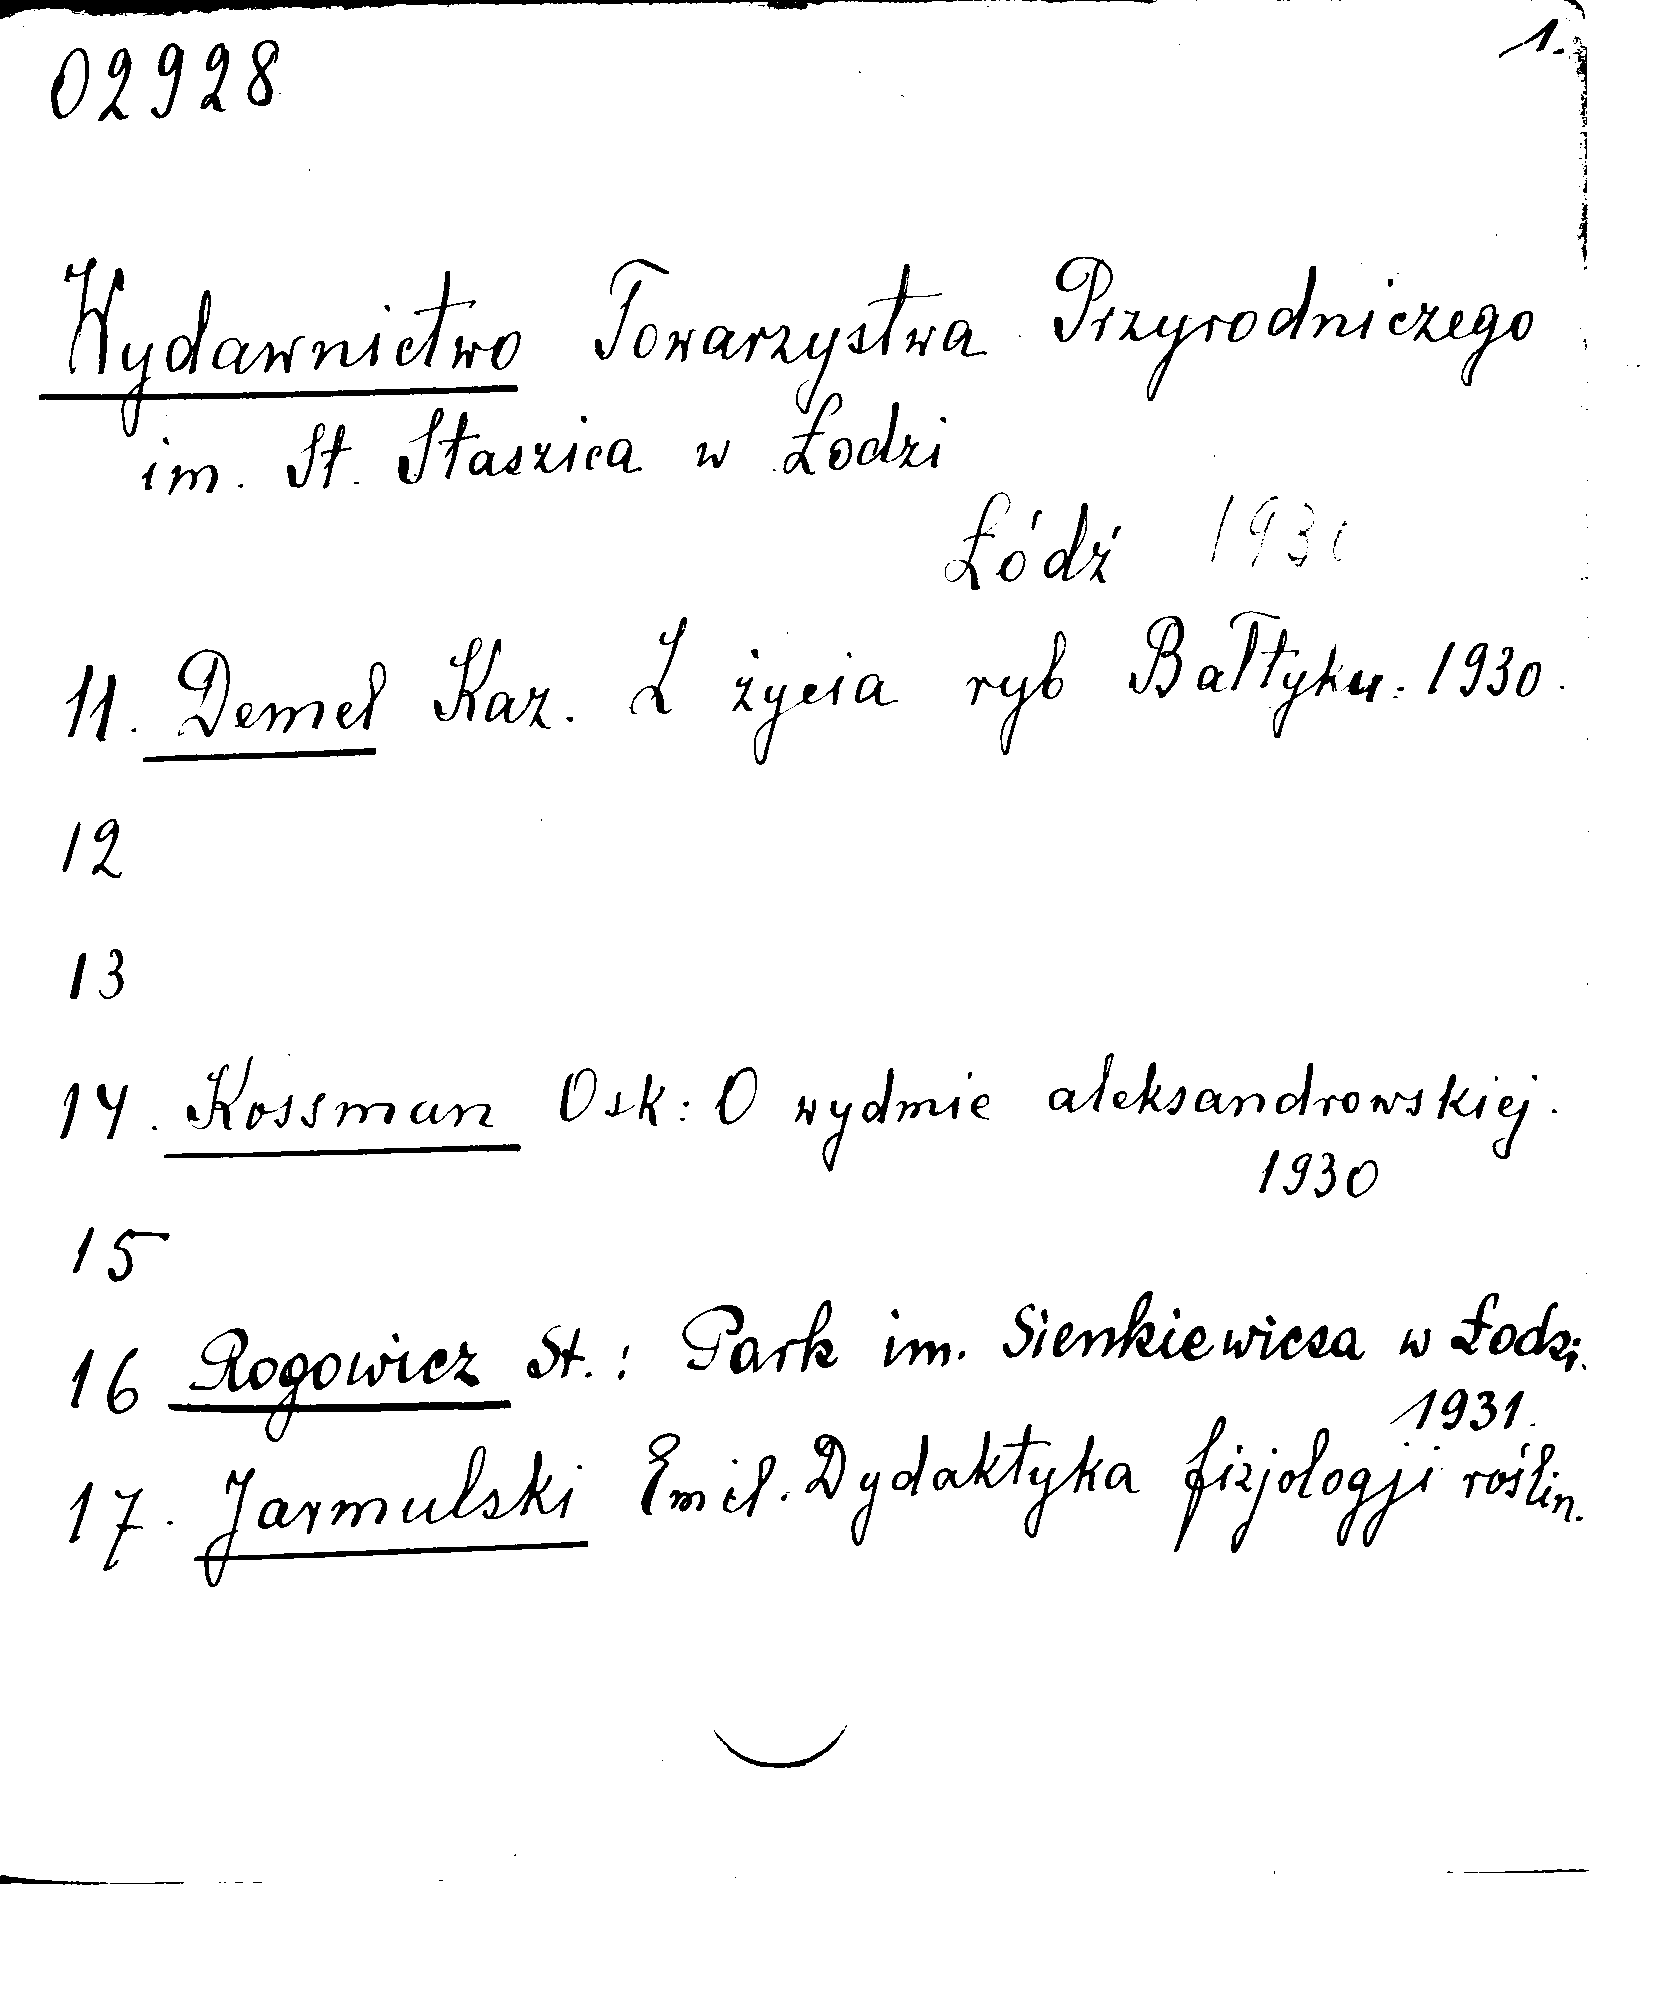 1.
02928
Wydawnictwo Towarzystwa Przyrodniczego
im. St. Staszica w Łodzi
Łódź
11. Demel Kaz. Z życia ryb Bałtyku. 1930.
12
13
14. Kossman Osk: O wydmie aleksandrowskiej.
1930
15
16 Rogowicz St.: Park im. Sienkiewicza w Łodzi.
1931.
17. Jarmulski Emil. Dydaktyka fizjologji roślin.